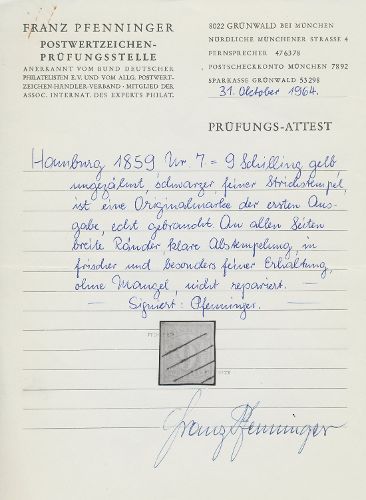 FRANZ PFENNINGER
POSTWERTZEICHEN-
PRÜFUNGSSTELLE
ANERKANNT VOM BUND DEUTSCHER
PHILATELISTEN E.V. UND VOM ALLG. POSTWERT-
ZEICHEN-HÄNDLER-VERBAND · MITGLIED DER
ASSOC. INTERNAT. DES EXPERTS PHILAT.
8022 GRÜNWALD BEI MÜNCHEN
NÖRDLICHE MÜNCHENER STRASSE 4
FERNSPRECHER 476378
POSTSCHECKKONTO MÜNCHEN 7892
SPARKASSE GRÜNWALD 53298
31. Oktober 1964.
PRÜFUNGS-ATTEST
Hamburg 1859 Nr 7 = 9 Schilling gelb
ungezähnt, schwarzer feiner Strichstempel,
ist eine Originalmarke der ersten Aus-
gabe, echt gebraucht. An allen Seiten
breite Ränder, klare Abstempelung, in
frischer und besonders feiner Erhaltung,
ohne Mängel, nicht repariert. —
— Signiert: Pfenninger. —
Franz Pfenninger